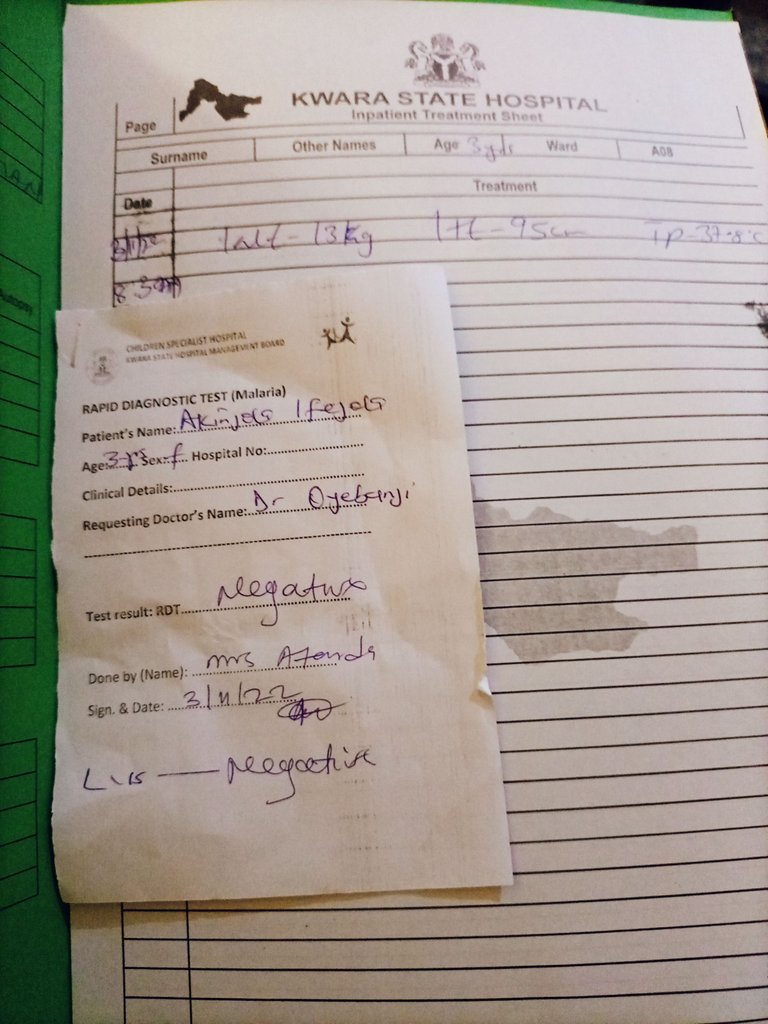 KWARA STATE HOSPITAL
Inpatient Treatment Sheet
Page
Surname Other Names Age 3yrs Ward A08
Date Treatment
3/11/22 13kg Ht - 95cm Tp - 37.8°C
8:30am
CHILDREN SPECIALIST HOSPITAL
KWARA STATE HOSPITAL MANAGEMENT BOARD
RAPID DIAGNOSTIC TEST (Malaria)
Patient's Name: Akinjola Ifejola
Age: 3yrs Sex: f Hospital No:
Clinical Details:
Requesting Doctor's Name: Dr Oyebanji
Test result: RDT Negative
Done by (Name): Mrs Afonda
Sign. & Date: 3/11/22
Negative